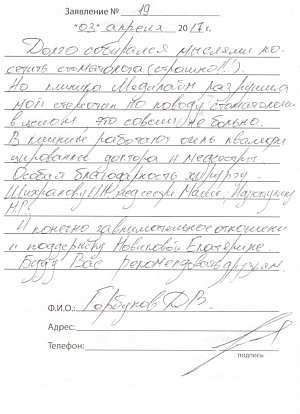 Заявление № 19
"03" апреля 2017 г.
Долго собирался мыслями по-
сетить стоматолога (страшно!!).
Но клиника Медилайн разрушила
мой стереотип по поводу стоматологии
в целом, это совсем не больно.
В клинике работают очень квалифи-
цированные доктора и медсестры.
Особая благодарность хирургу
медсестре Маше,
И конечно за внимательное отношение
и поддержку Новиковой Екатерине.
Буду Вас рекомендовать друзьям.
Ф.И.О.: Горбунов Д.В.
Адрес:
Телефон:
подпись